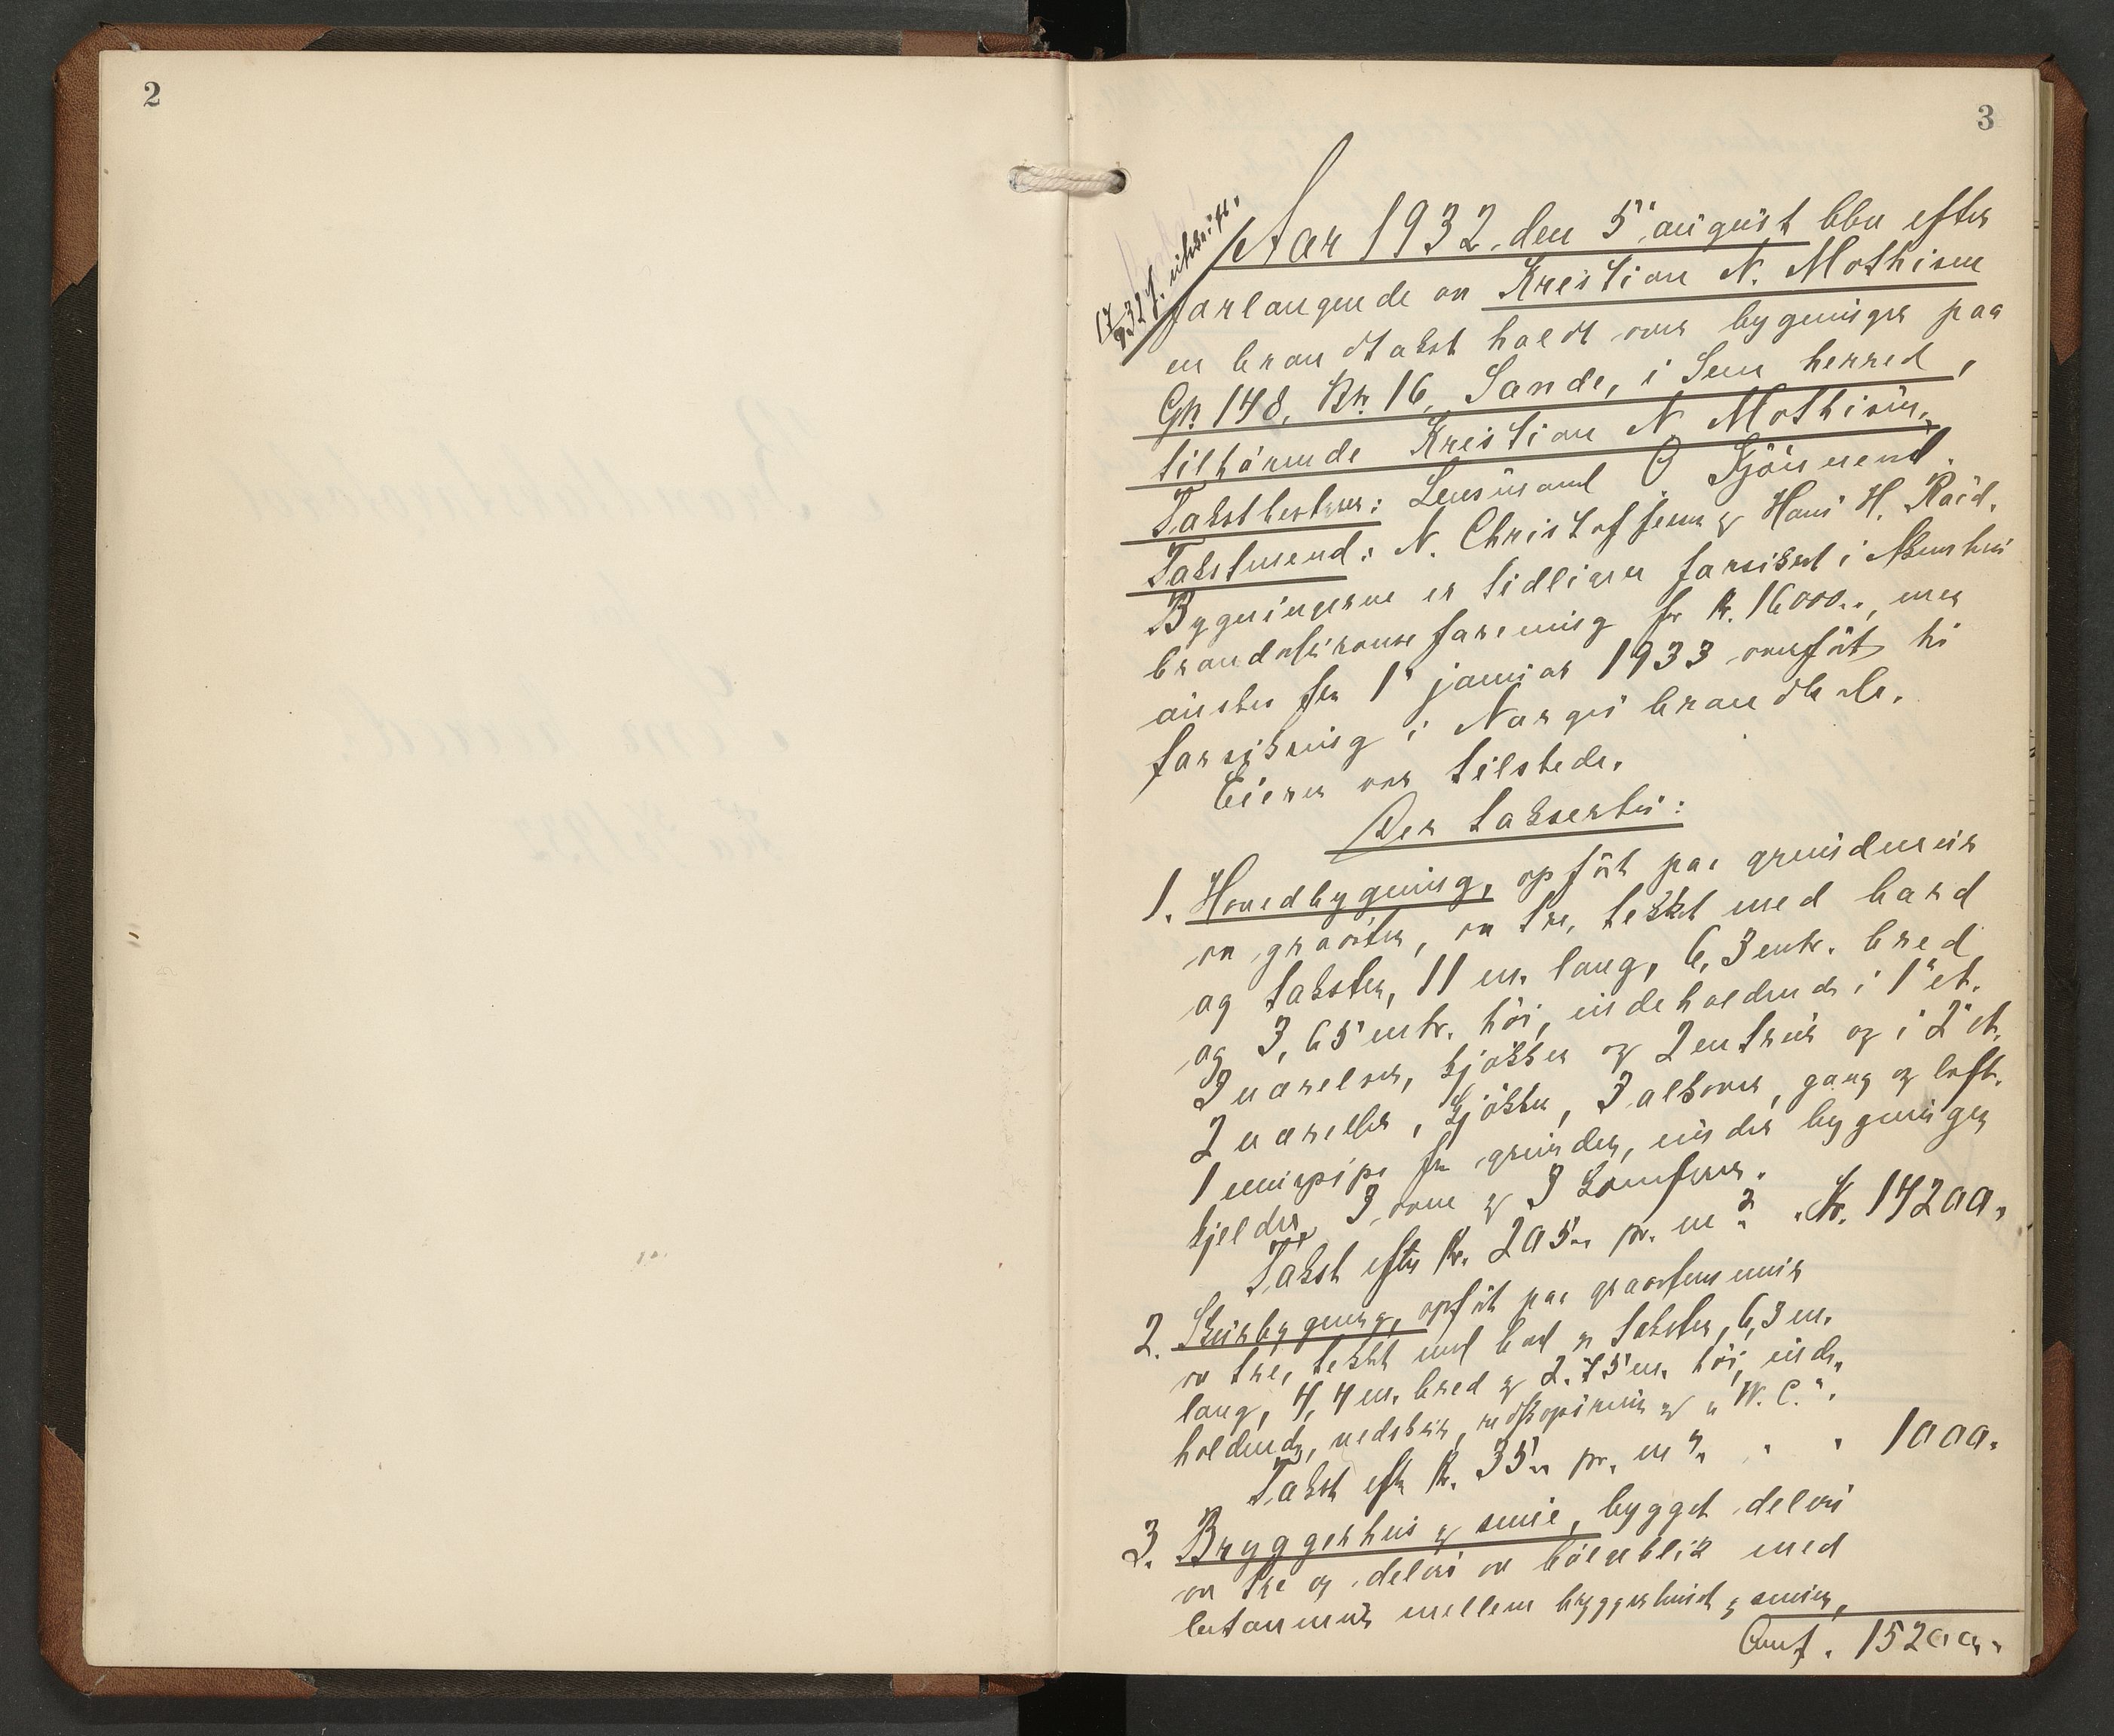 2
3
17/8 32 f. utskrift.
Aar 1932, den 5' august blev efter
forlangende av Kristian N. Mathisen
en brandtakst holdt over bygninger paa
Gn. 148, Bn. 16, Sande, i Sem herred,
tilhørende Kristian N. Mathisen.
Takstbestyrer: Lensmand O
Takstmend: N. Christoffersen & Hans H. Røid.
Bygningerne er tidligere forsikret i
brandassuranseforening for kr. 16000.., men
ønskes fra 1' januar 1933 overført til
forsikring i Norges brandkasse.
Eieren var tilstede.
Der taksertes:
1. Hovedbygning, opført paa grundmur
av graasten, av tre, tekket med bord
og taksten, 11 m. lang, 6,3 mtr. bred
og 3,65 mtr. høi, indeholdende i 1' et.
3 værelser, kjøkken og 2 entreer og i 2' et.
2 værelser, kjøkken, 3 alkover, gang og loft.
1 murpipe fra grunden, under bygningen
kjelder, 3 ovne & 3 komfyrer.
Takst efter kr. 205.. pr. m² . Kr. 14200.
2. Skurbygning, opført paa graastensmur
av tre, tekket med bord & taksten, 6,3 m.
lang, 4,4 m. bred & 2.75 m. høi, inde-
holdende, vedskur, redskapsrum & "W.C.".
Takst efter kr. 35.. pr. m² " " 1000.
3. Bryggerhus & smie, bygget delvis
av tre og delvis av bølgeblik med
betonmur mellem bryggerhuset & smien,
Overf. 15200.